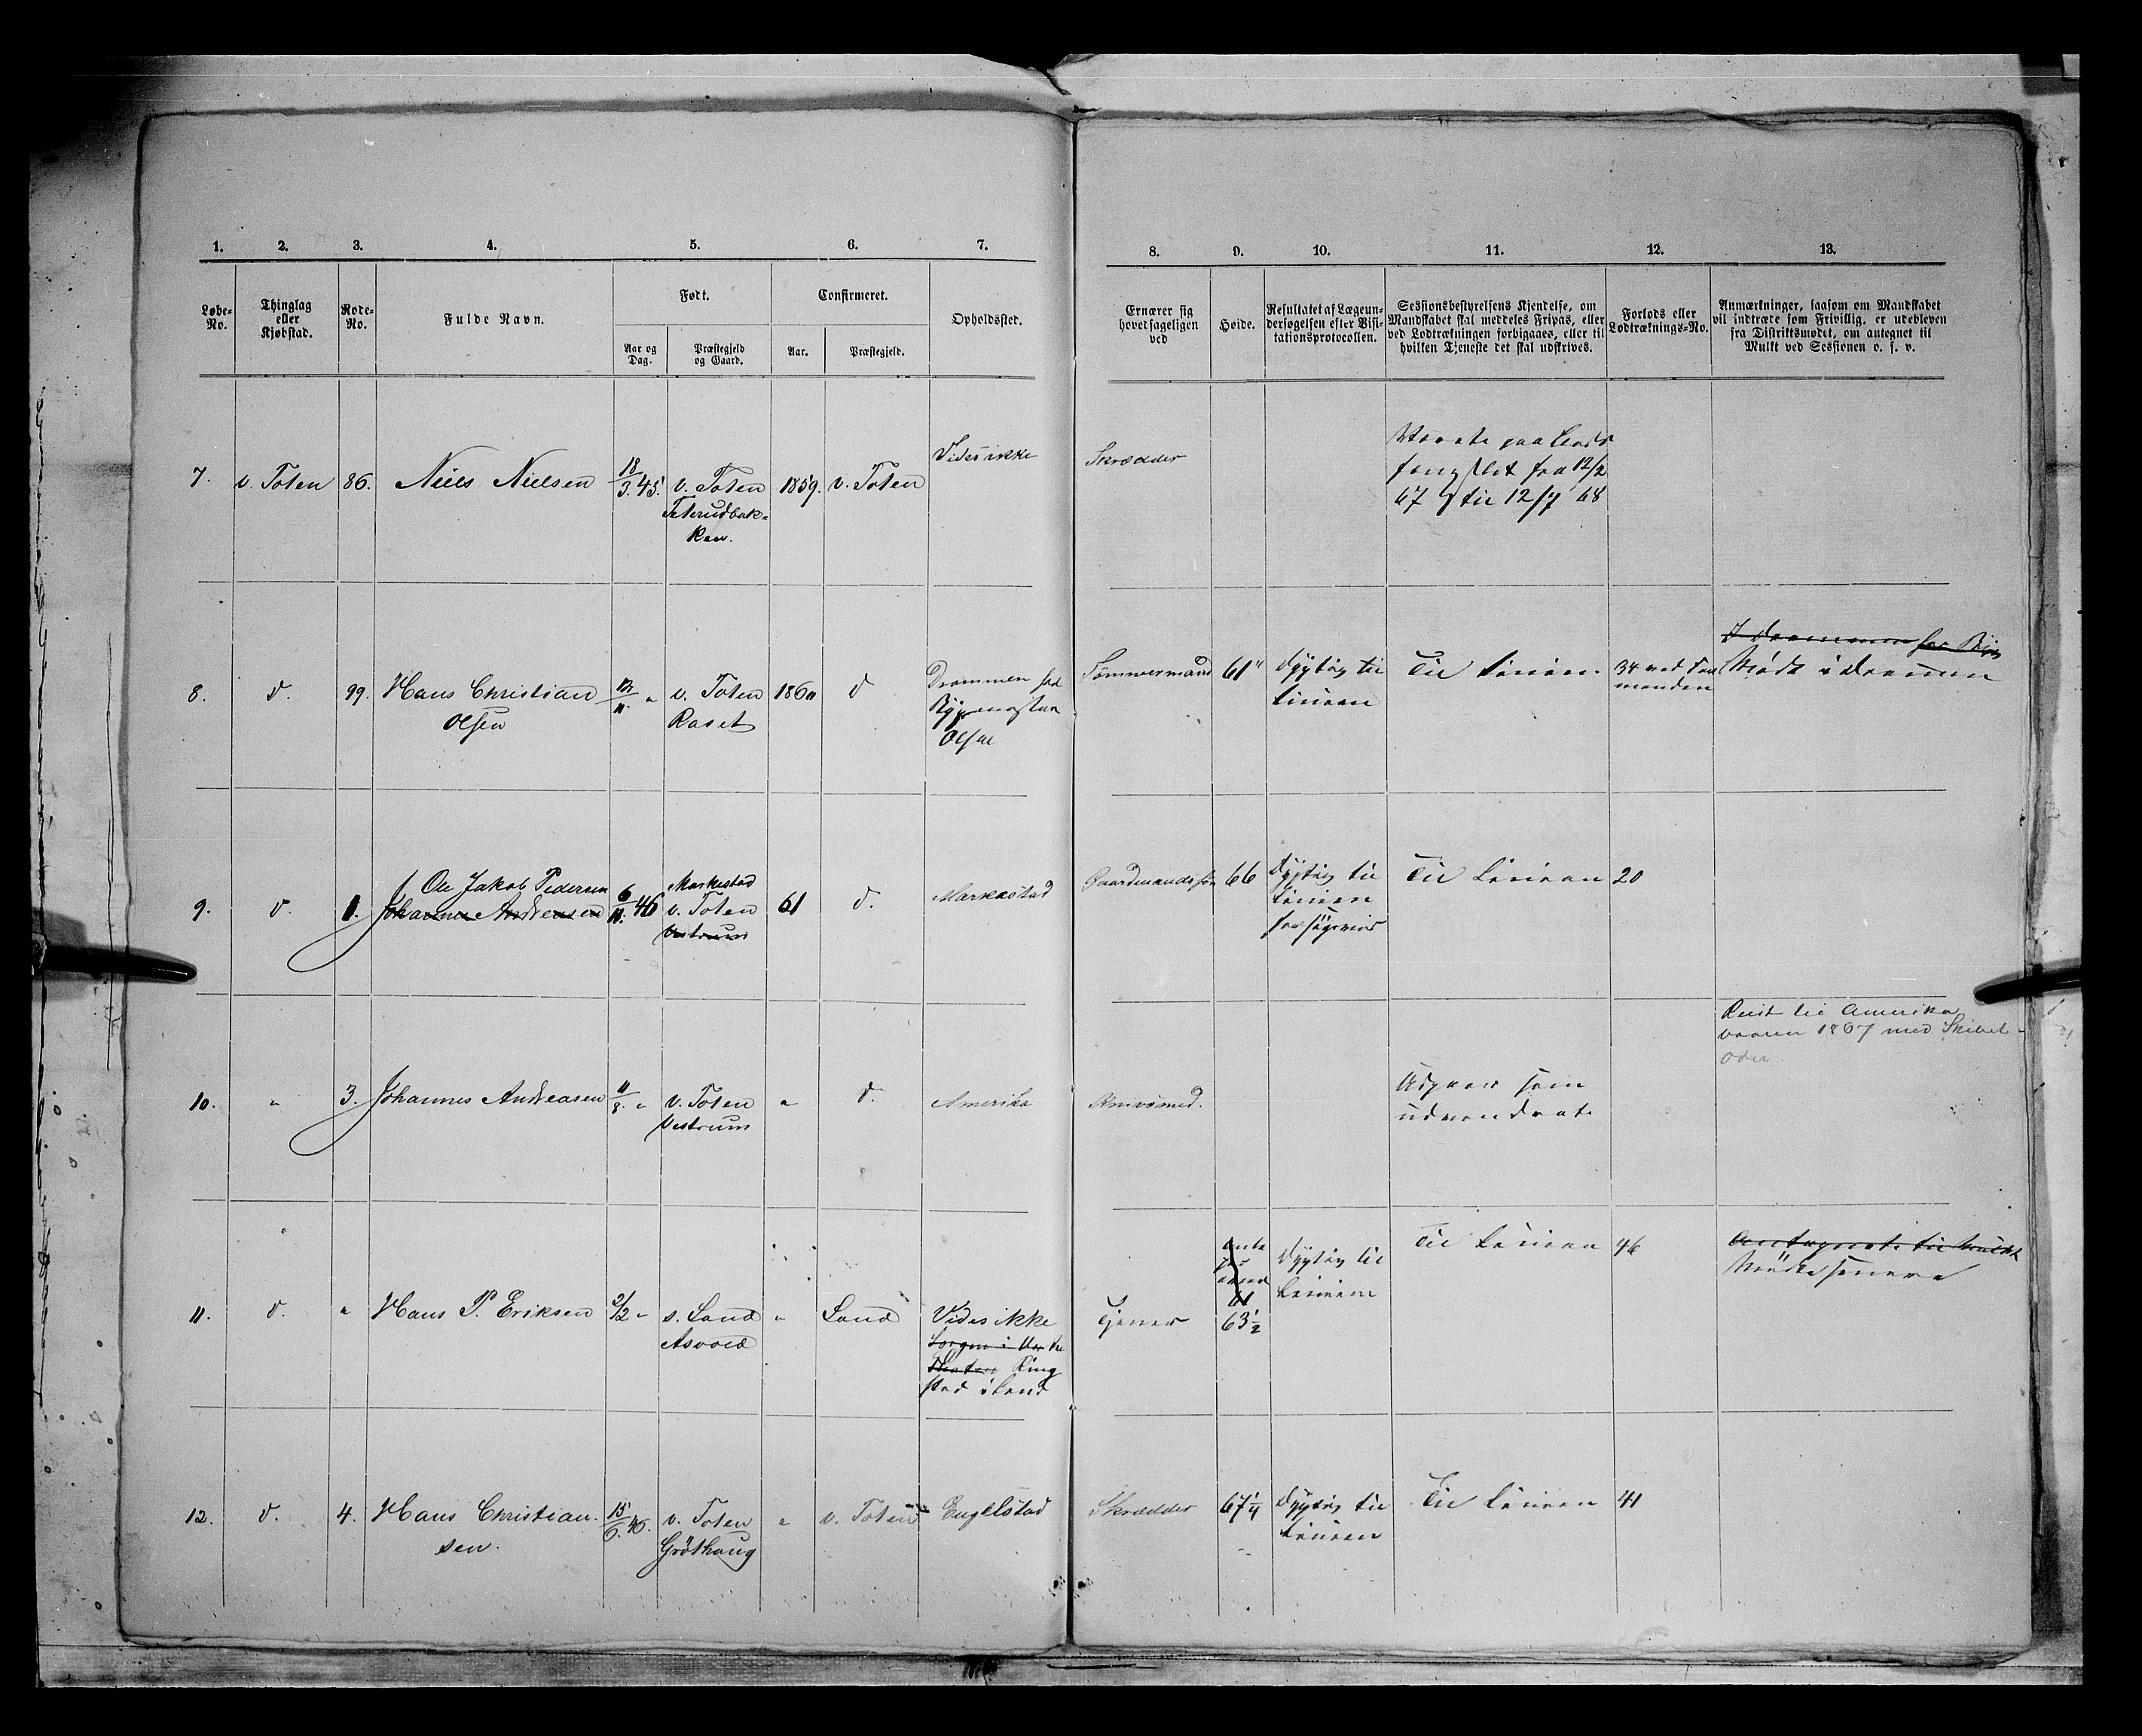 1. 2. 3. 4. 5. 6. 7. 8. 9. 10. 11. 12. 13.
Løbe-
No.
Thinglag
eller
Kjøbstad.
Rode-
No.
Fulde Navn.
Født.
Aar og
Dag.
Præstegjeld
og Gaard.
Confirmeret.
Aar.
Præstegjeld.
Opholdssted.
Ernærer sig
hovedsageligen
ved
Høide.
Resultatet af Lægeun-
dersøgelsen efter Visi-
tationsprotocollen.
Sessionsbestyrelsens Kjendelse, om
Mandskabet skal meddeles Fripas, eller
ved Lodtrækningen forbigaaes, eller til
hvilken Tjeneste det skal udskrives.
Forlods eller
Lodtræknings-No.
Anmærkninger, saasom om Mandskabet
vil indtræde som Frivillig, er udebleven
fra Distriktsmødet, om antegnet til
Mulkt ved Sessionen o. s. v.
7. v. Toten 86. Niels Nielsen 18/3. 45. v. Toten 1859. v. Toten Vides ikke Skrædder
Teterudbak-
ken.
fra 12/2
67 til 12/7 68
8. d. 99. Hans Christian 12/11. " v. Toten 1860 d Drammen Tømmermand 61" Dygtig til Til Linien 34
Olsen Raset
Linien
Mødt i Drammen
9. d. 1. Ole Jakob Pedersen 6/11. 46 Markestad 61 d. Markestad Gaardmandssøn 66 Dygtig til Til Linien 20
Johannes Andreasen v. Toten
Vestrum
Linien
10. " 3. Johannes Andreasen 11/8. " v. Toten " d. Amerika Knivsmed. Udgaar som
Vestrum
udvandret.
Reist til Amerika
vaaren 1867 med Skibet
Oder
11. d. " Hans P. Eriksen 2/2 " s. Land " Land Vides ikke Tjener 63 1/2 Dygtig til Til Linien 46
Asvold
Ring
sted i Land
Linien
Antegnet til Mulkt
Mødte senere
12. d. 4. Hans Christian- 15/6. 46. v. Toten " v. Toten Engelstad Skrædder 67 1/4 Dygtig til Til Linien 41
sen. Gröthaug
Linien